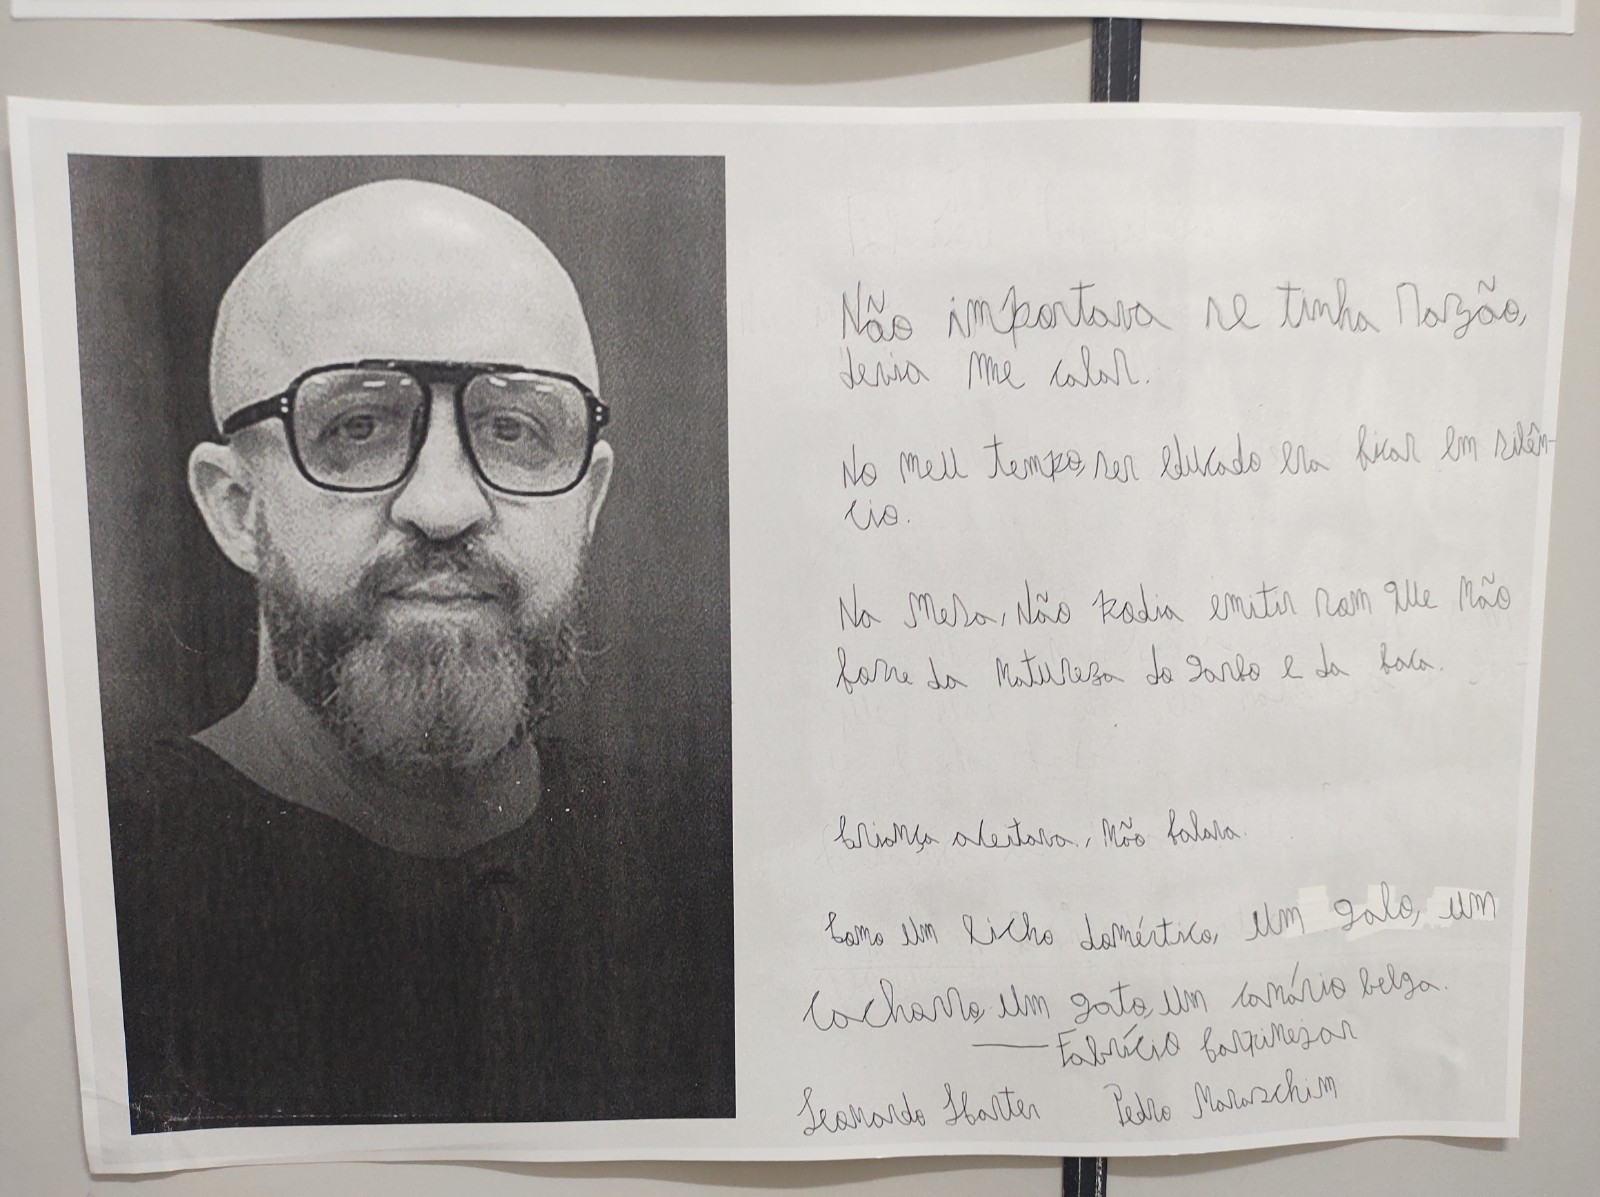 Não importava se tinha razão,
devia me calar.
No meu tempo, ser educado era ficar em silên-
cio.
Na mesa, não podia emitir som que não
fosse da natureza do garfo e da faca.
Criança aceitava, não falava.
Como um bicho doméstico, um galo, um
cachorro, um gato, um canário belga.
Fabrício Carpinejar
Leonardo Pedro Maraschim